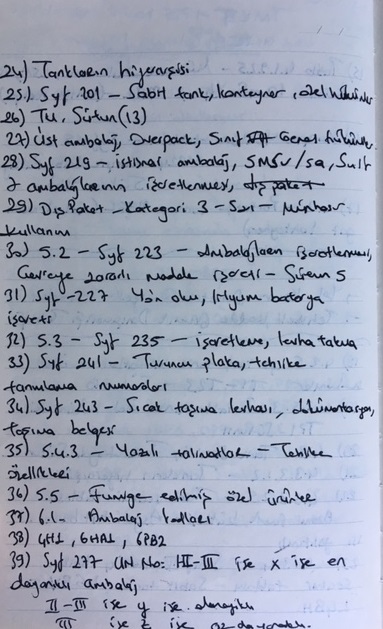 24) Tankların hiyerarşisi
25) Syf 201 - Sabit tank, konteyner, özel hükümler
26) Tu, Sütun (13)
27) Üst ambalaj, Overpack, Sınıf Genel hükümler
28) Syf 219 - istisnai ambalaj, Sınıf
7 ambalajlarının işaretlenmesi, dış paket
29) Dış Paket - Kategori 3 - Sarı - Münhasır
kullanım
30) 5.2 - Syf 223 - Ambalajların işaretlenmesi,
Çevreye zararlı madde işareti -
31) Syf - 227 Yön oku, lityum batarya
işareti
32) 5.3 - Syf 235 - işaretleme, levha takma
33) Syf 241 - Turuncu plaka, tehlike
tanımlama numaraları
34) Syf 243 - Sıcak taşıma levhası, dokümantasyon,
taşıma belgesi
35) 5.4.3 - Yazılı talimatlar - Tehlike
özellikleri
36) 5.5 - Fumige edilmiş özel ürünler
37) 6.1 - Ambalaj kodları
38) 4H1, 6HA1, 6PB2
39) Syf 277 UN No: ise X ise en
dayanıklı ambalaj
II-III ise y ise
III ise z ise az dayanıklı